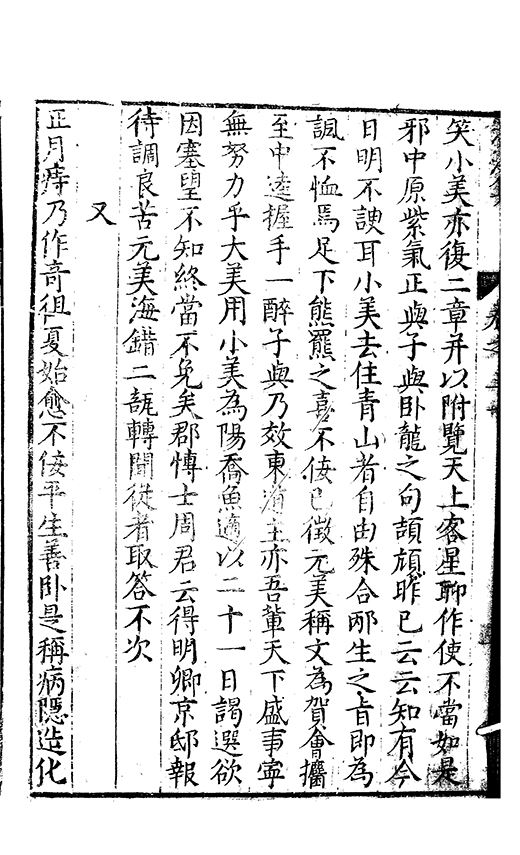 笑小美亦復二章并以附覽天上客星聊作使不當如是
邪中原紫氣正與子與卧龍之句頡頏昨已云云知有今
日明不諛耳小美去住青山者自由殊合邴生之旨即為
諷不恤焉足下熊羆之喜不佞已徵元美稱文為賀會擕
至中逵握手一醉子與乃效東道主亦吾輩天下盛事寧
無努力乎大美用小美為陽喬魚適以二十一日謁選欲
因塞望不知終當不免矣郡愽士周君云得明卿京邸報
待調良苦元美海錯二瓿轉聞從者取答不次
又
正月痔乃作奇徂夏始愈不佞平生善卧是稱病隱造化